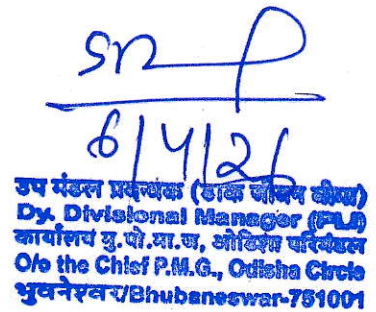 6/4/21
उप मंडल प्रबन्धक (डाक जीवन बीमा)
Dy. Divisional Manager (PLI)
कार्यालय मु.पो.मा.ज, ओडिशा परिमंडल
O/o the Chief P.M.G., Odisha Circle
भुवनेश्वर/Bhubaneswar-751001